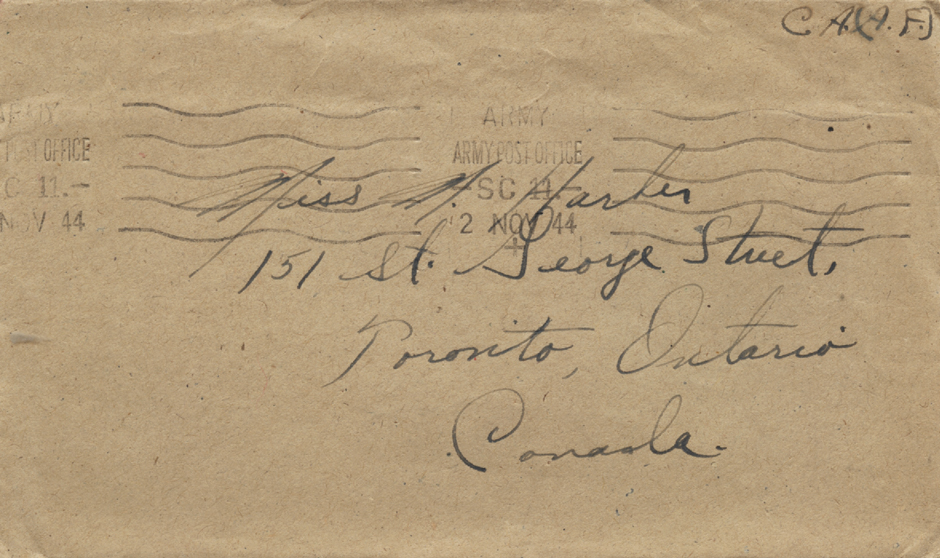 C. A.(A. F.)
ARMY
POST OFFICE
C 11.-
NOV 44
ARMY
ARMY POST OFFICE
SC 11
2 NOV 44
Miss M. Harber
151 St. George Street,
Toronto, Ontario
Canada.